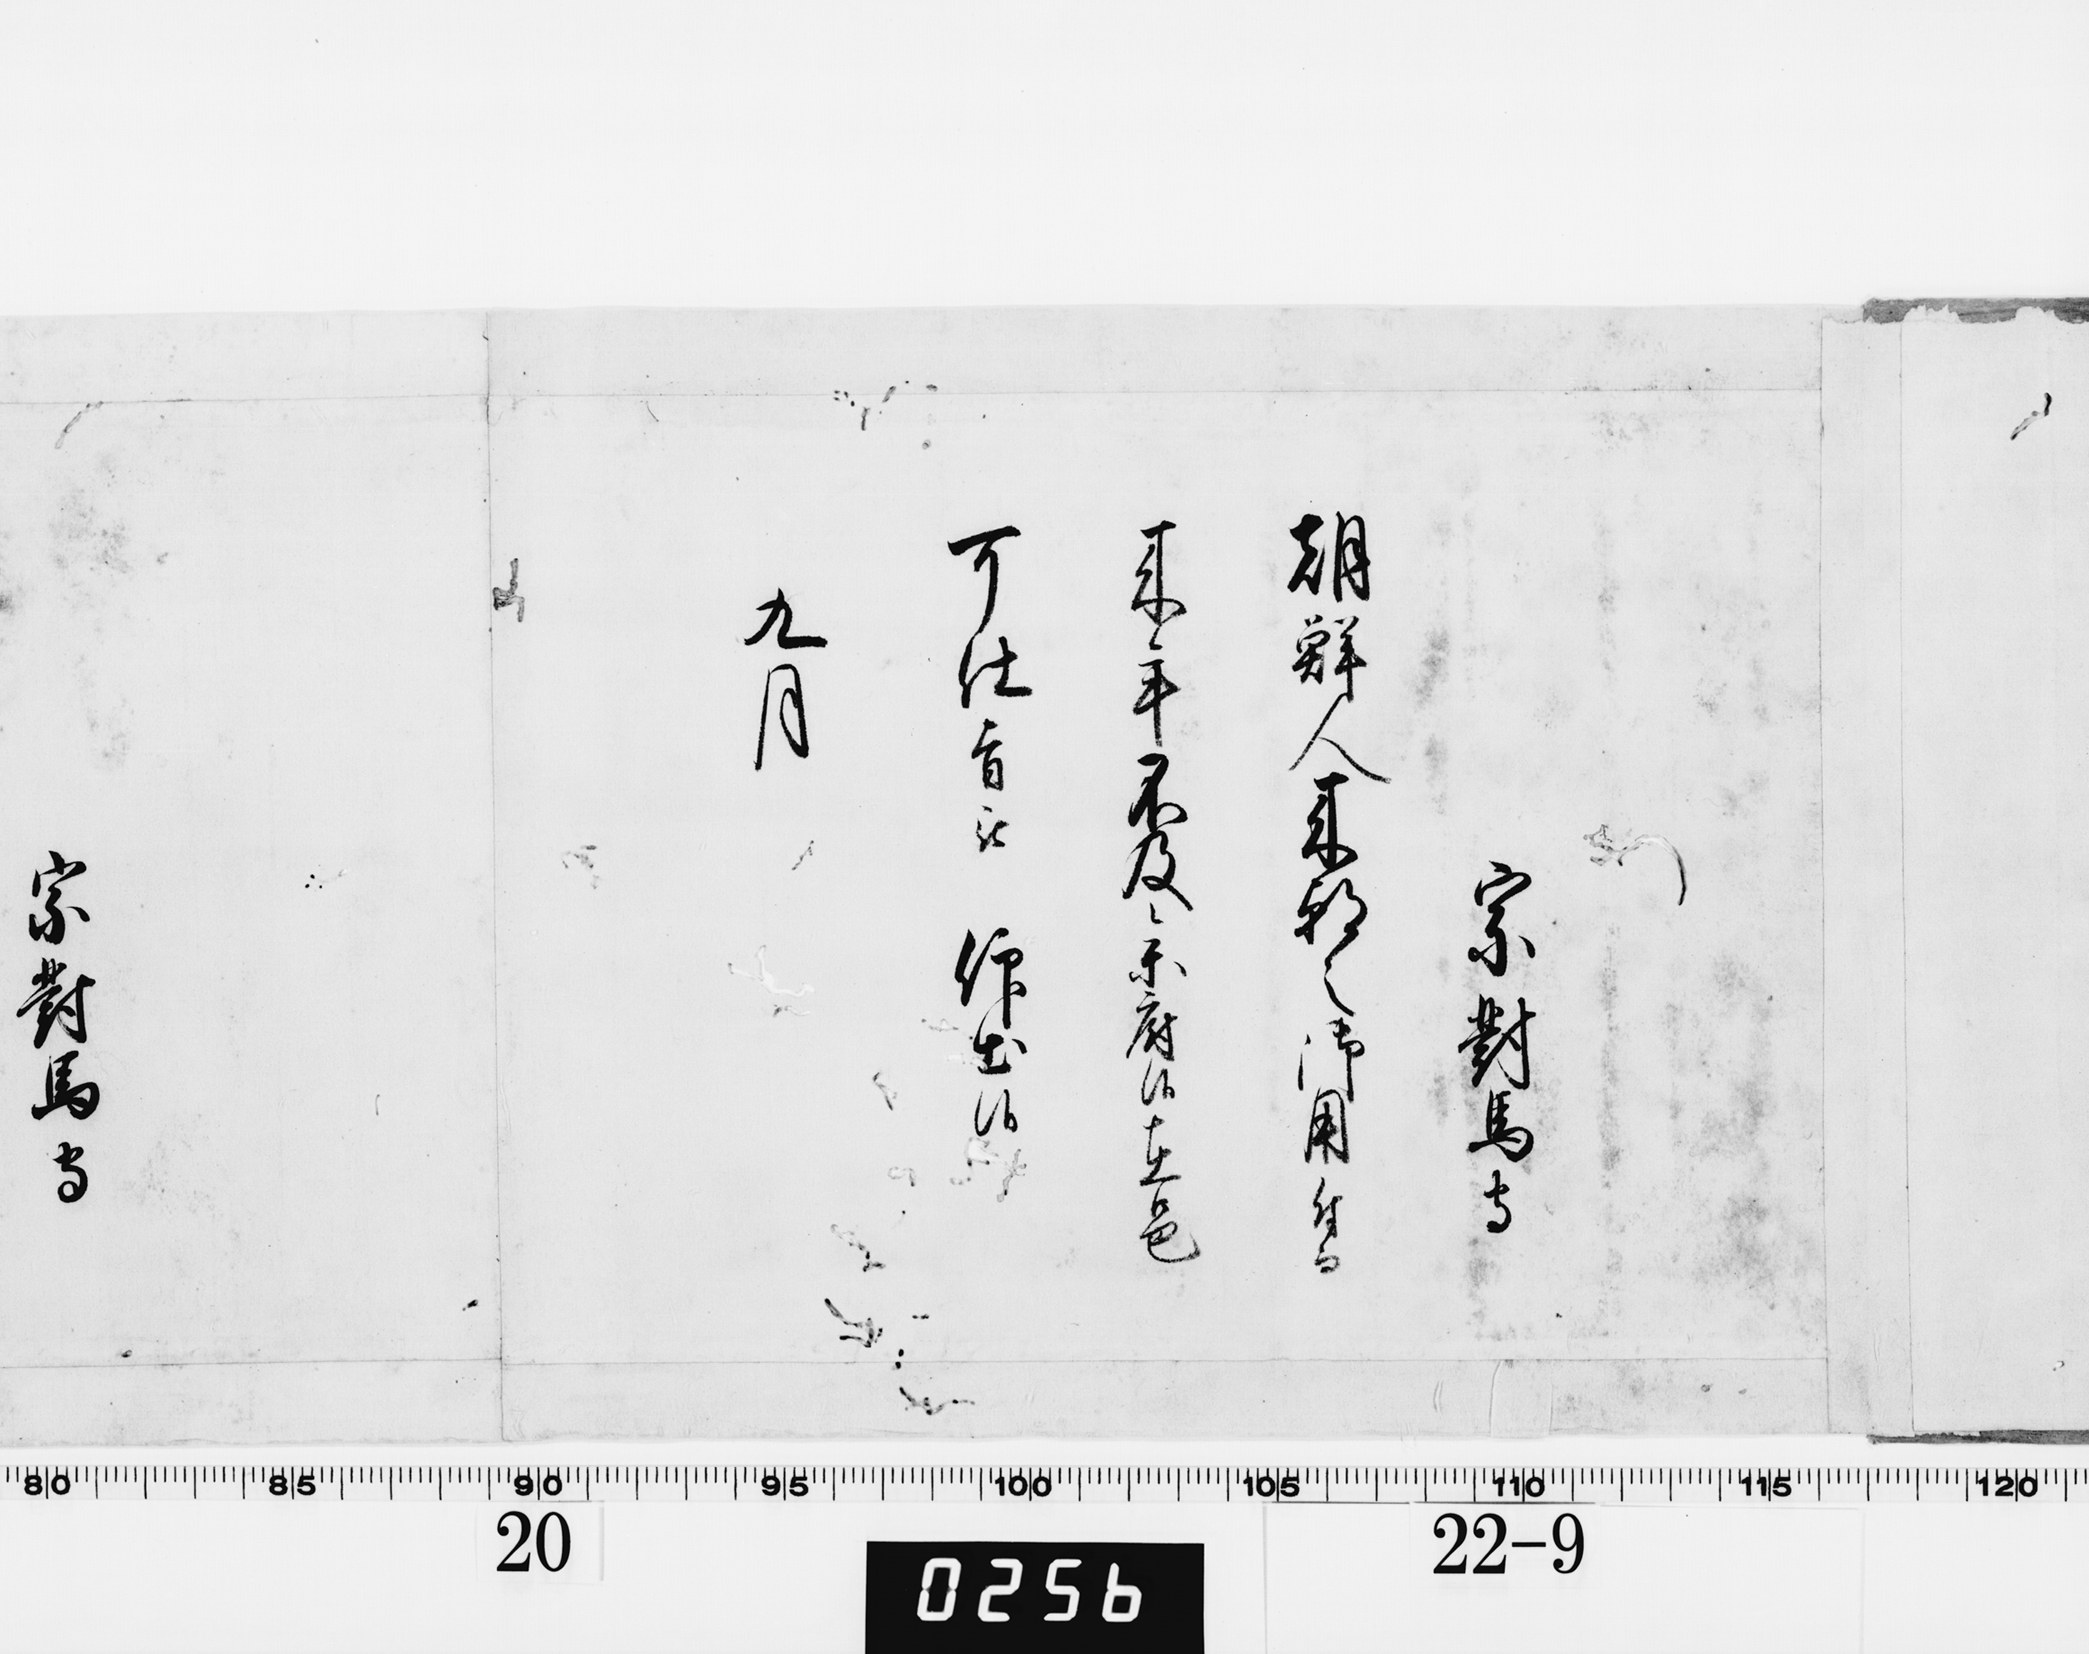 宗對馬守
朝鮮人来聘之御用ニ付而
来年不及参府候在邑
可仕旨被　仰出候
九月
宗對馬守
80 85 90 95 100 105 110 115 120
20
22-9
0256